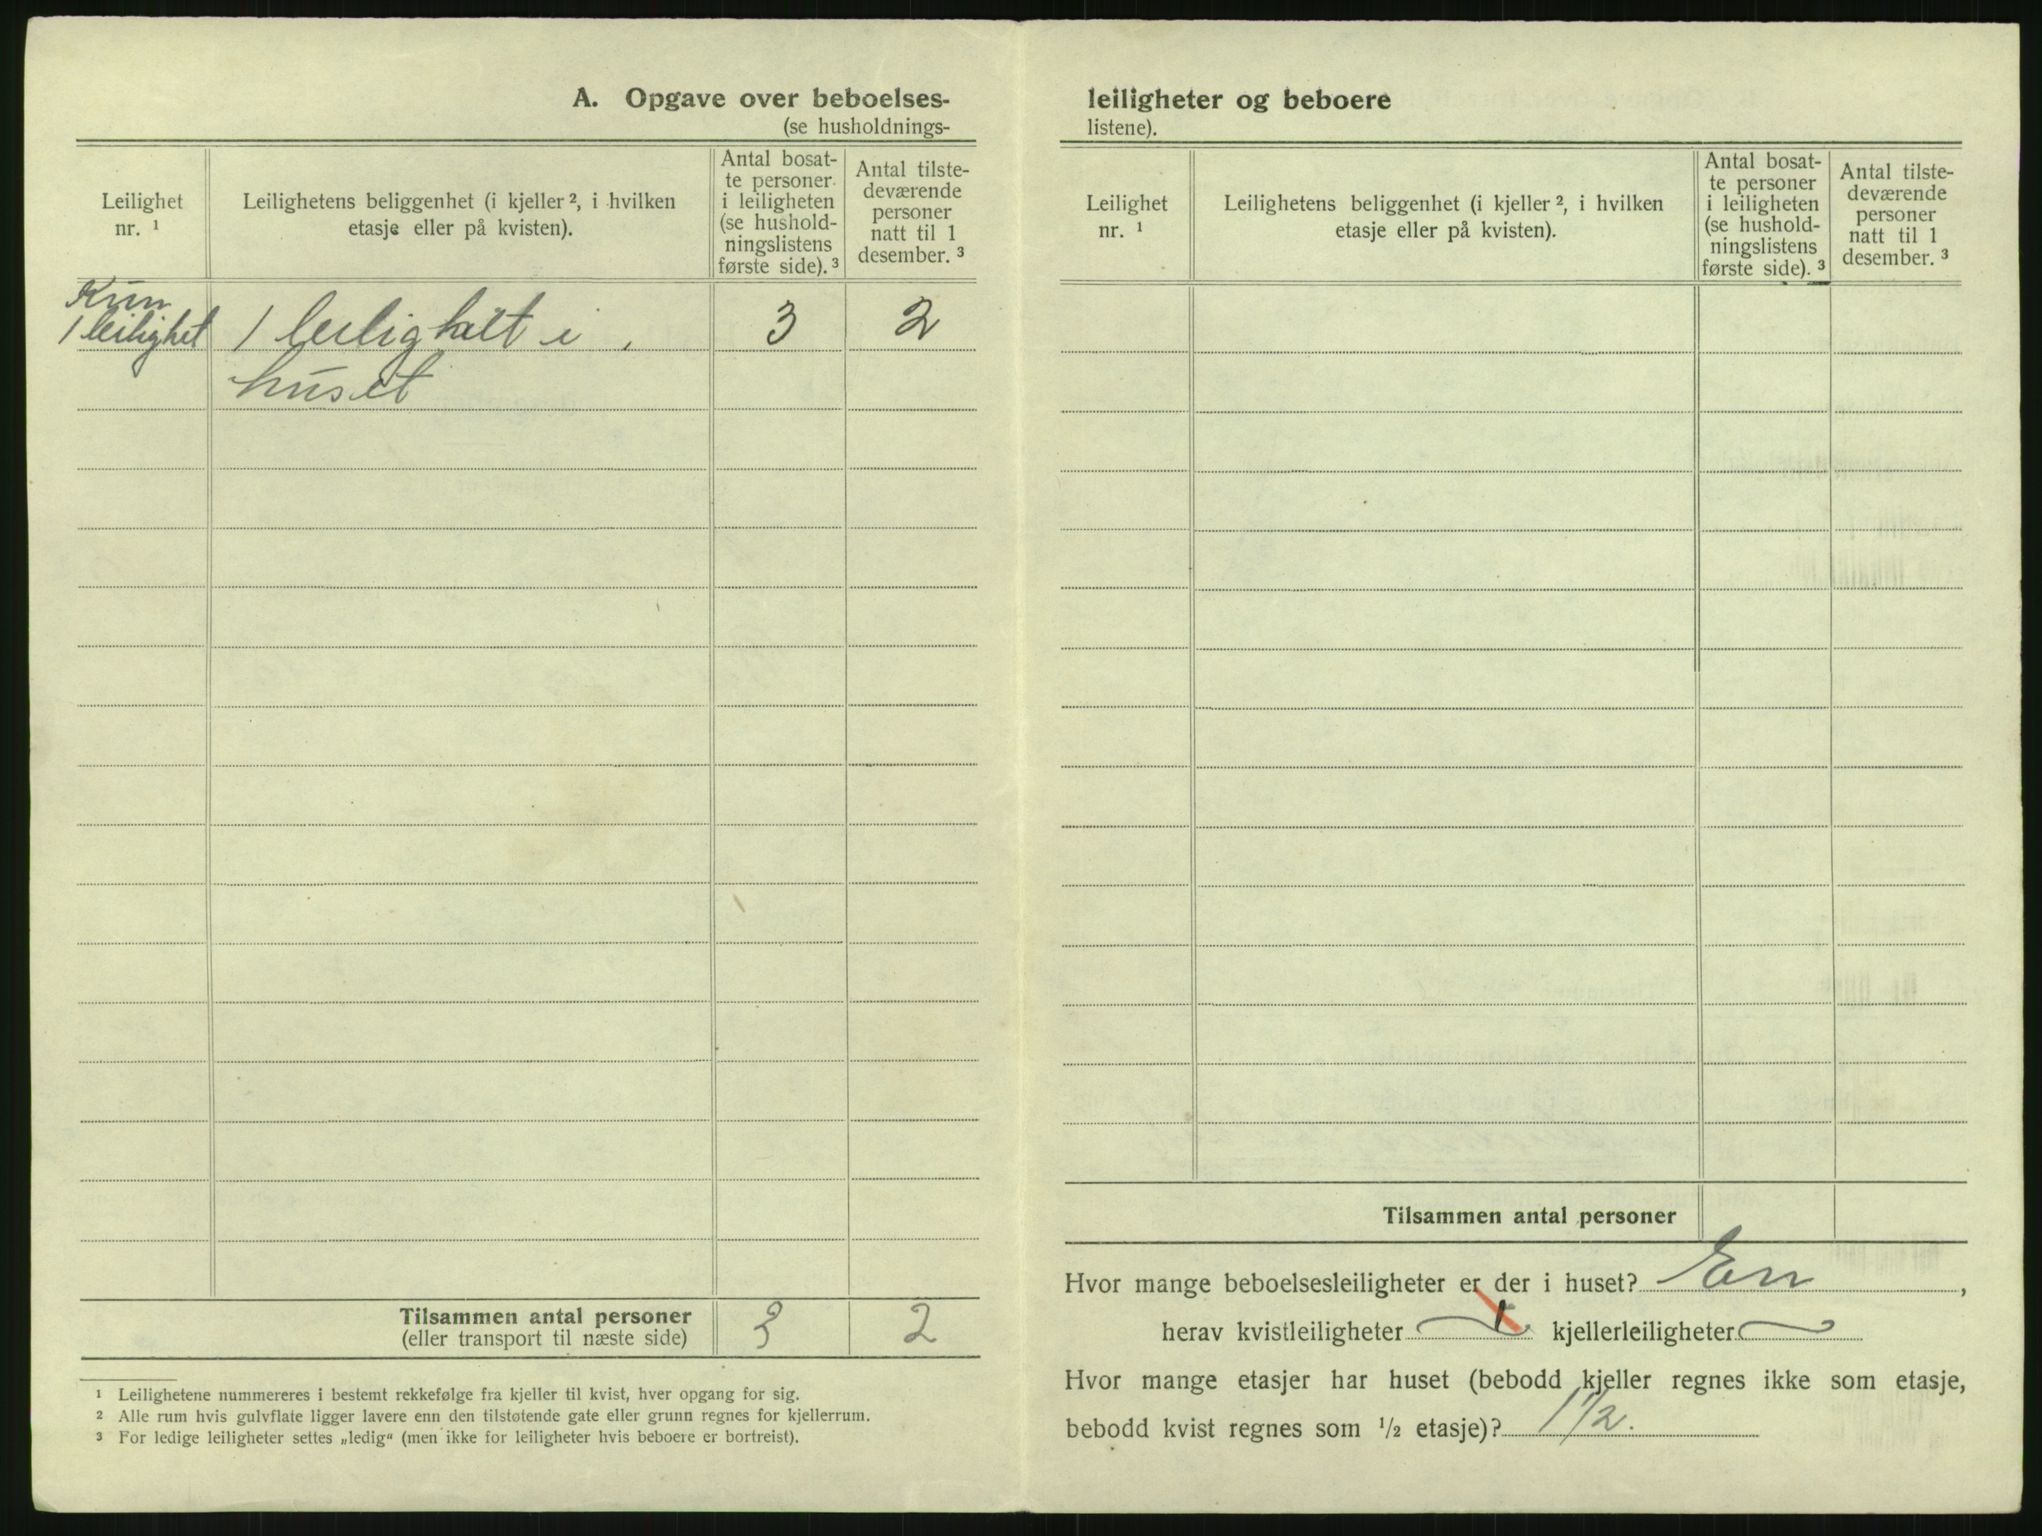 A. Opgave over beboelses-
(se husholdnings-
Leilighet
nr. ¹
Leilighetens beliggenhet (i kjeller ², i hvilken
etasje eller på kvisten).
Antal bosat-
te personer
i leiligheten
(se hushold-
ningslistens
første side). ³
Antal tilste-
deværende
personer
natt til 1
desember. ³
Kun
1 leilighet
1 leilighet i
huset
3
2
Tilsammen antal personer
(eller transport til næste side)
3
2
¹ Leilighetene nummereres i bestemt rekkefølge fra kjeller til kvist, hver opgang for sig.
² Alle rum hvis gulvflate ligger lavere enn den tilstøtende gate eller grunn regnes for kjellerrum.
³ For ledige leiligheter settes „ledig“ (men ikke for leiligheter hvis beboere er bortreist).
leiligheter og beboere
listene).
Leilighet
nr. ¹
Leilighetens beliggenhet (i kjeller ², i hvilken
etasje eller på kvisten).
Antal bosat-
te personer
i leiligheten
(se hushold-
ningslistens
første side). ³
Antal tilste-
deværende
personer
natt til 1
desember. ³
Tilsammen antal personer
Hvor mange beboelsesleiligheter er der i huset? En,
herav kvistleiligheter kjellerleiligheter
Hvor mange etasjer har huset (bebodd kjeller regnes ikke som etasje,
bebodd kvist regnes som ½ etasje)? 1 ½.